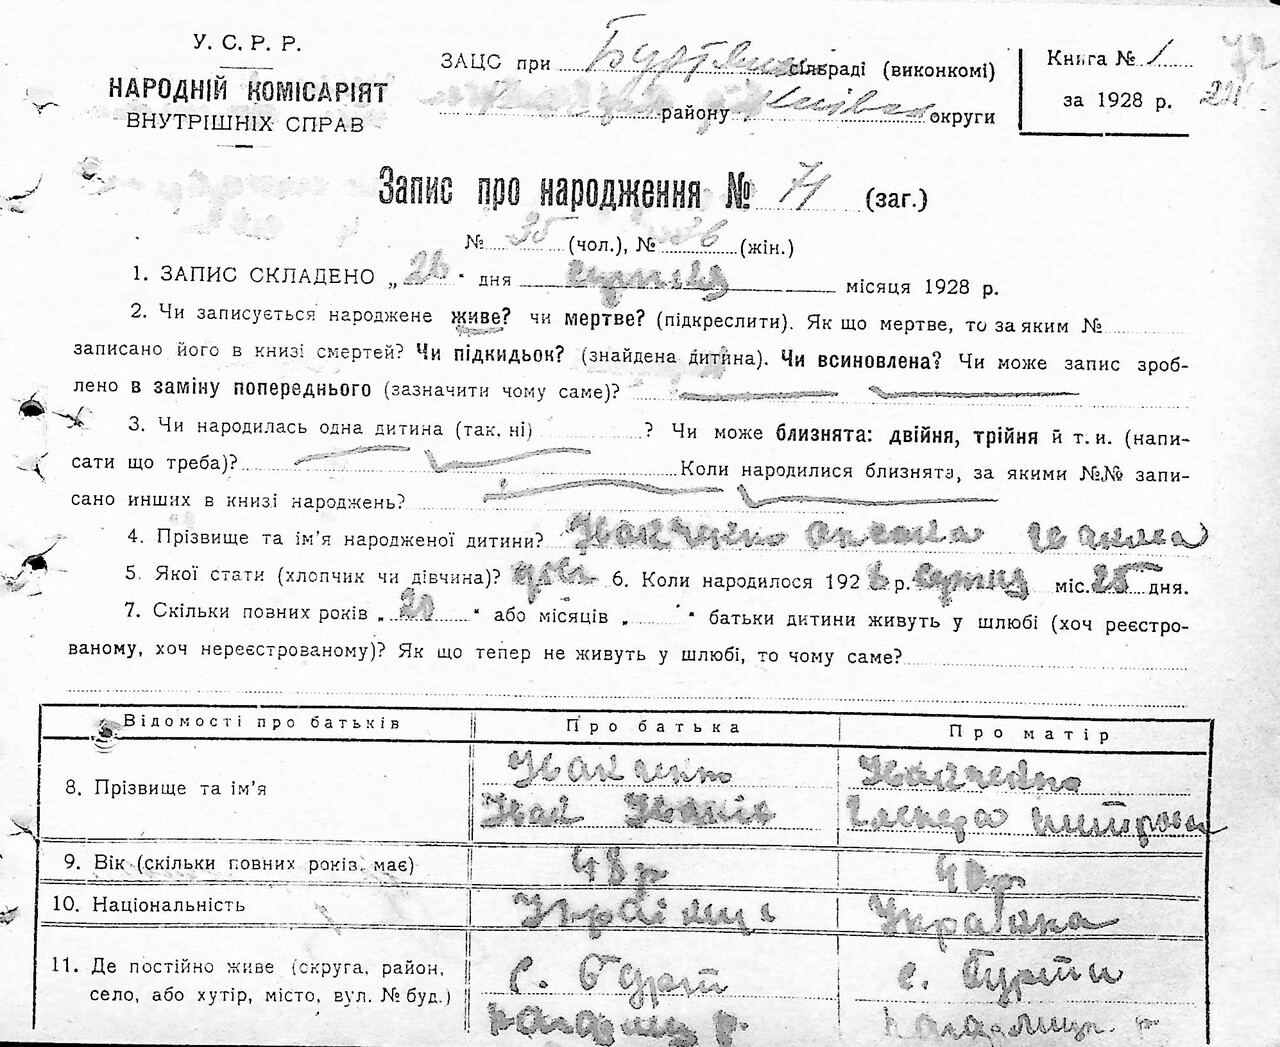 У. С. Р. Р.
НАРОДНІЙ КОМІСАРІЯТ
ВНУТРІШНІХ СПРАВ
ЗАЦС при сільраді (виконкомі)
району округи
Книга № 1
за 1928 р.
72
Запис про народження № 71 (заг.)
№ 35 (чол.), № 36 (жін.)
1. ЗАПИС СКЛАДЕНО „26“ дня серпня місяця 1928 р.
2. Чи записується народжене живе? чи мертве? (підкреслити). Як що мертве, то за яким №
записано його в книзі смертей? Чи підкидьок? (знайдена дитина). Чи всиновлена? Чи може запис зроб-
лено в заміну попереднього (зазначити чому саме)?
3. Чи народилась одна дитина (так, ні) ? Чи може близнята: двійня, трійня й т. и. (напи-
сати що треба)? Коли народилися близнята, за якими №№ запи-
сано инших в книзі народжень?
4. Прізвище та ім'я народженої дитини? Іванченко Оксана Іванівна
5. Якої стати (хлопчик чи дівчина)? дівч 6. Коли народилося 1928 р. серпня міс. 25 дня.
7. Скільки повних років „20“ або місяців „ “ батьки дитини живуть у шлюбі (хоч реєстро-
ваному, хоч нереєстрованому)? Як що тепер не живуть у шлюбі, то чому саме?
Відомості про батьків Про батька Про матір
8. Прізвище та ім'я Іванченко Іван Іванів Іванченко
9. Вік (скільки повних років має) 48 р 40 р
10. Національність Українець Українка
11. Де постійно живе (округа, район, с. Бурти с. Бурти
село, або хутір, місто, вул. № буд.) Кагарлиц р. Кагарлицк. р